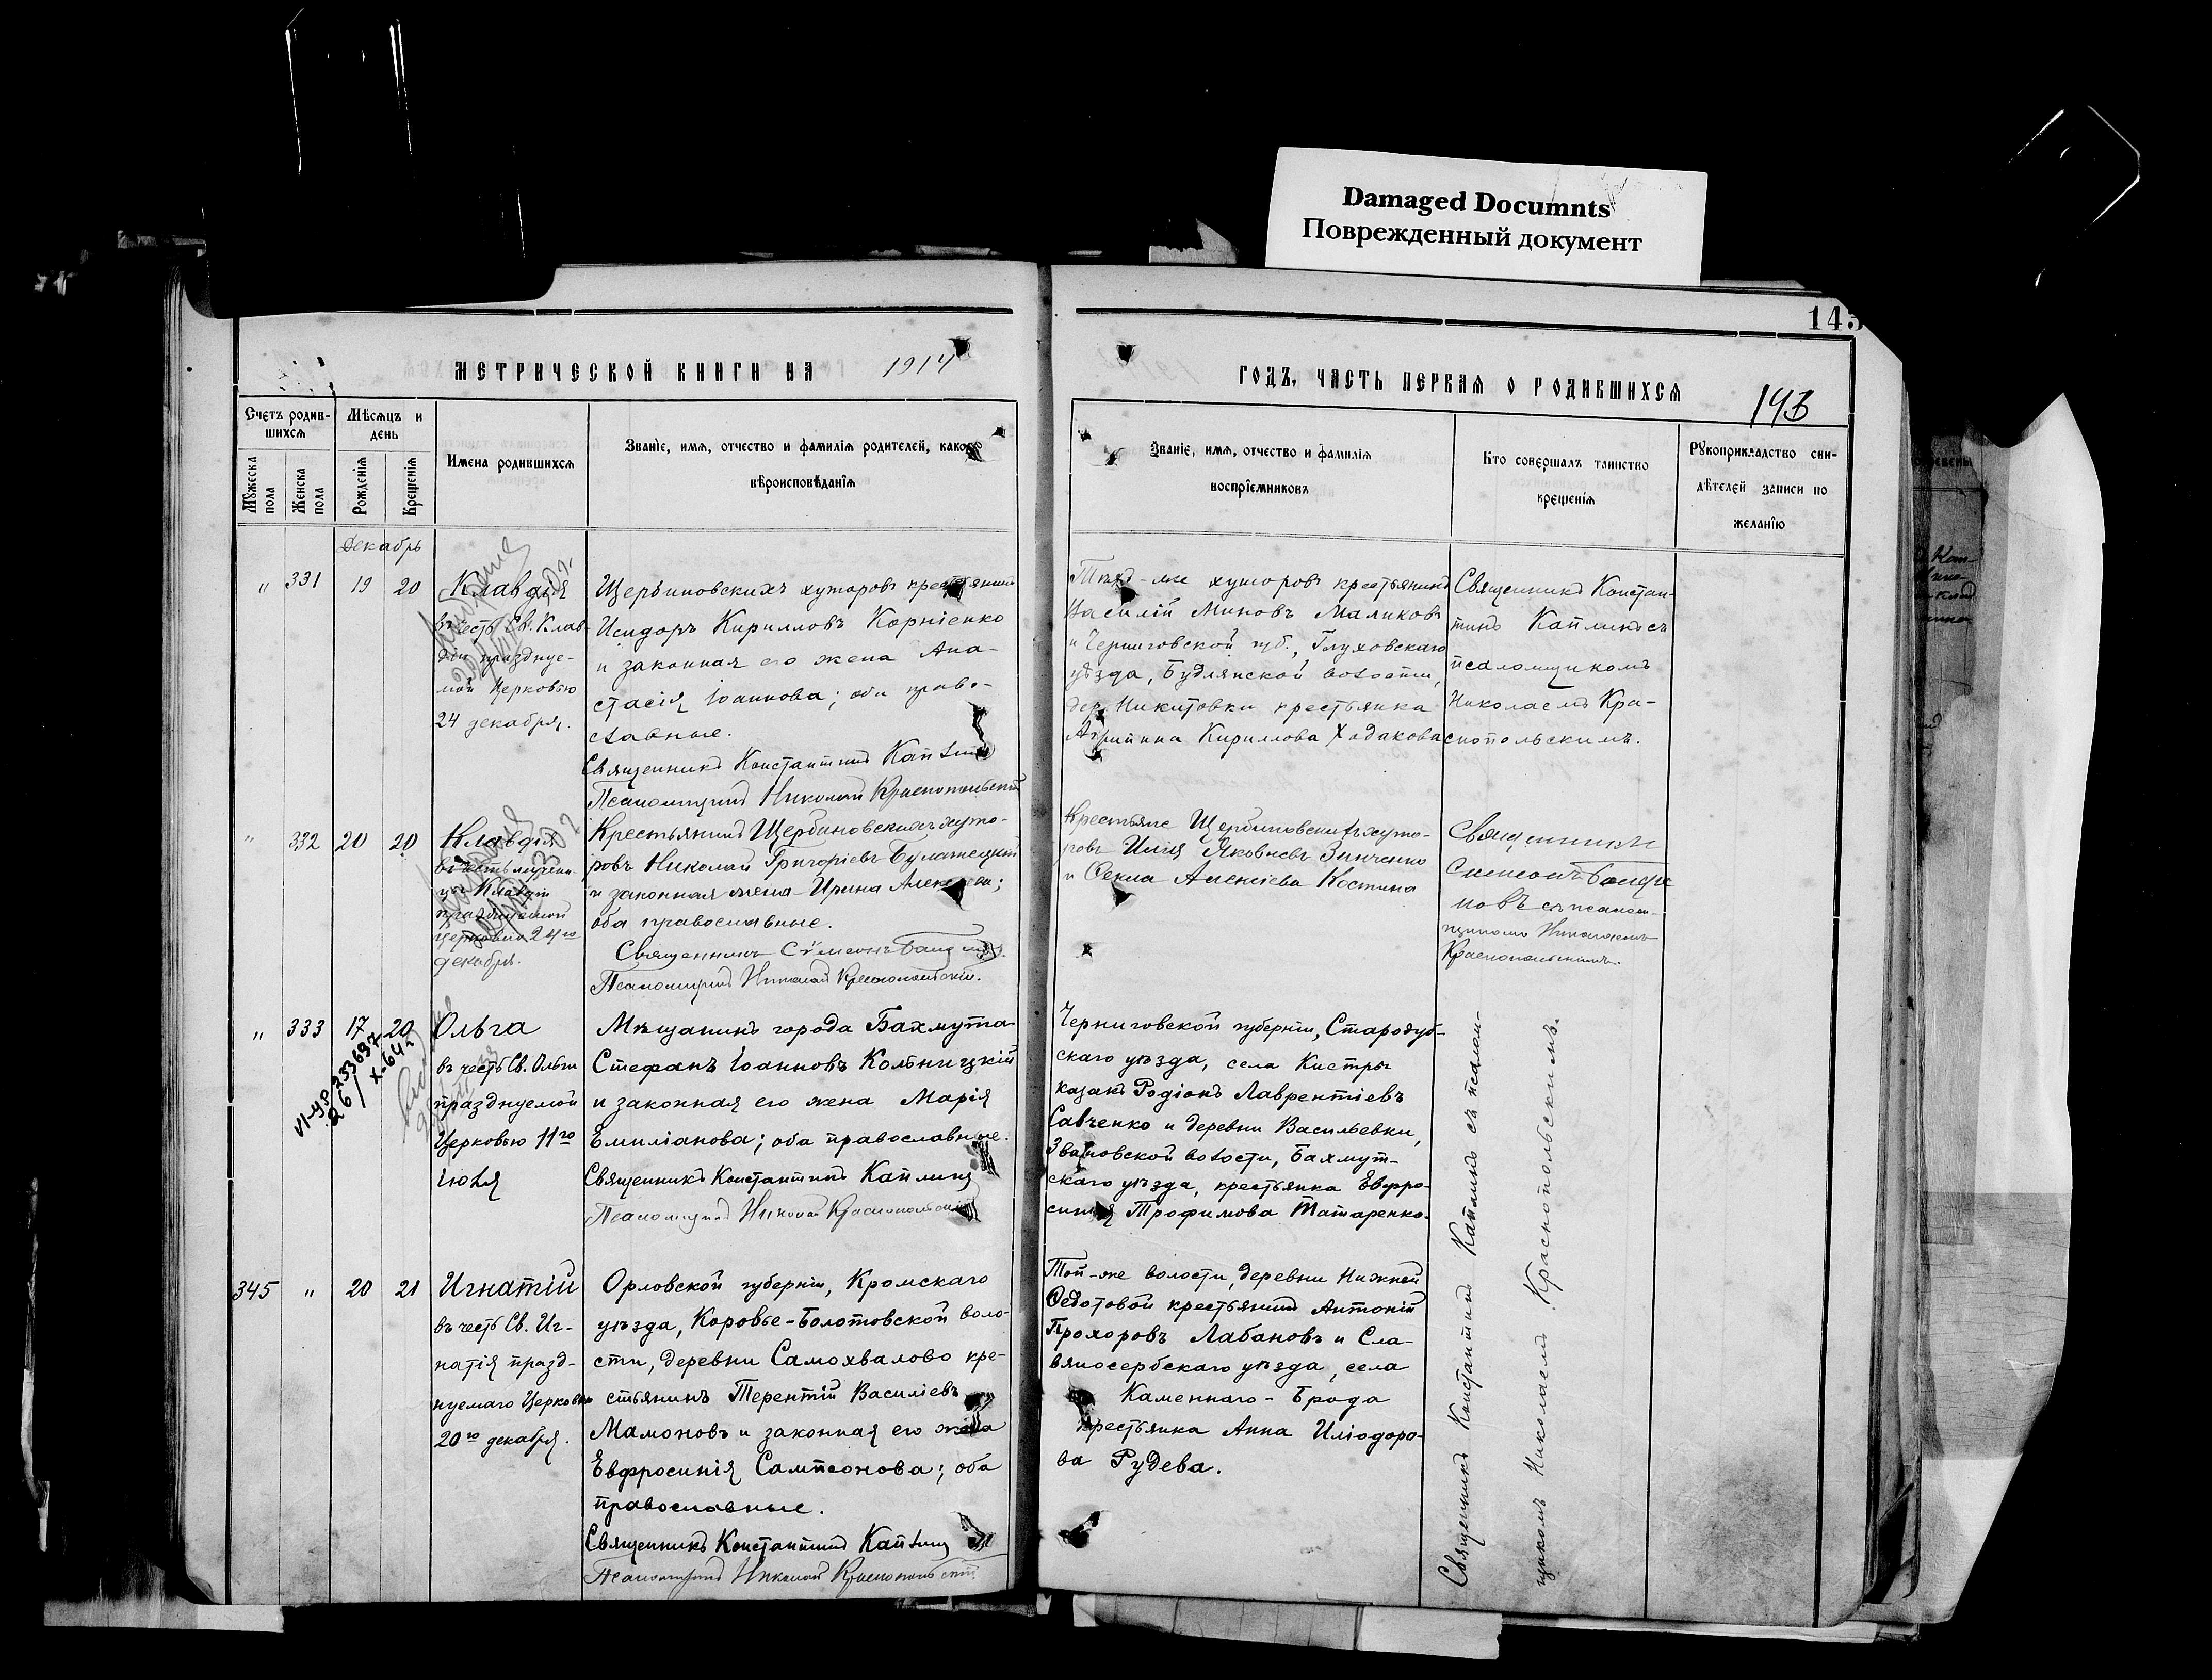 Damaged Documnts
Поврежденный документ
143
МЕТРИЧЕСКОЙ КНИГИ НА 1914
ГОДЪ, ЧАСТЬ ПЕРВАЯ О РОДИВШИХСЯ
143
Счетъ родив-
шихся
Мѣсяцъ и
день
Мужеска
пола
Женска
пола
Рожденія
Крещенія
Имена родившихся
Званіе, имя, отчество и фамилія родителей, какого
вѣроисповѣданія
Званіе, имя, отчество и фамилія
воспріемниковъ
Кто совершалъ таинство
крещенія
Рукоприкладство сви-
дѣтелей записи по
желанію
Декабрь
" 331 19 20
Клавдія
въ честь Св. Клав-
діи празднуе-
мой Церковью
24 декабря.
Щербиновскихъ хуторовъ крестьянинъ
Исидоръ Кирилловъ Корніенко
и законная его жена Ана-
стасія Іоаннова; оба право-
славные.
Священникъ Константинъ Каплинъ
Псаломщикъ Николай Краснопольскій
Тѣхъ-же хуторовъ крестьянинъ
Василій Миновъ Маликовъ
и Черниговской губ., Глуховскаго
уѣзда, Будлянской волости,
дер. Никитовки крестьянка
Агрипина Кириллова Ходакова
Священникъ Констан-
тинъ Каплинъ съ
псаломщикомъ
Николаемъ Кра-
снопольскимъ.
" 332 20 20
Клавдія
въ честь мучени-
цы Клавдіи
празднуемой
Церковію 24го
декабря.
Крестьянинъ Щербиновскихъ хуто-
ровъ Николай Григоріевъ
и законная жена Ирина
оба православные.
Священникъ Сѵмеонъ
Псаломщикъ Николай Краснопольскій.
Крестьяне Щербиновскихъ хуто-
ровъ Илія Яковлевъ Зинченко
и Ѳекла Алексіева Костина
Священникъ
Симеонъ
новъ съ псалом-
щикомъ Николаемъ
Краснопольскимъ.
" 333 17 20
VI-УР 233697
26/X-64г
Ольга
въ честь Св. Ольги
празднуемой
Церковью 11го
іюля
Мѣщанинъ города Бахмута
Стефанъ Іоанновъ Кольницкій
и законная его жена Марія
Емиліанова; оба православные.
Священникъ Константинъ Каплинъ
Псаломщикъ Николай Краснопольскій
Черниговской губерніи, Стародуб-
скаго уѣзда, села Кистры
казакъ Родіонъ Лаврентіевъ
Савченко и деревни Васильевки,
Звановской волости, Бахмут-
скаго уѣзда, крестьянка Евфро-
синія Трофимова Татаренко.
345 " 20 21
Игнатій
въ честь Св. Иг-
натія празд-
нуемаго Церковью
20го декабря.
Орловской губерніи, Кромскаго
уѣзда, Коровье-Болотовской воло-
сти, деревни Самохвалово кре-
стьянинъ Терентій Василіевъ
Мамоновъ и законная его жена
Евфросинія Сампсонова; оба
православные.
Священникъ Константинъ Каплинъ
Псаломщикъ Николай Краснопольскій
Той-же волости, деревни Нижней
Ѳедотовой крестьянинъ Антоній
Прохоровъ Лабановъ и Сла-
вяносербскаго уѣзда, села
Каменнаго-Брода
крестьянка Анна Иліодоро-
ва Рудева.
Священникъ Константинъ Каплинъ съ псалом-
щикомъ Николаемъ Краснопольскимъ.